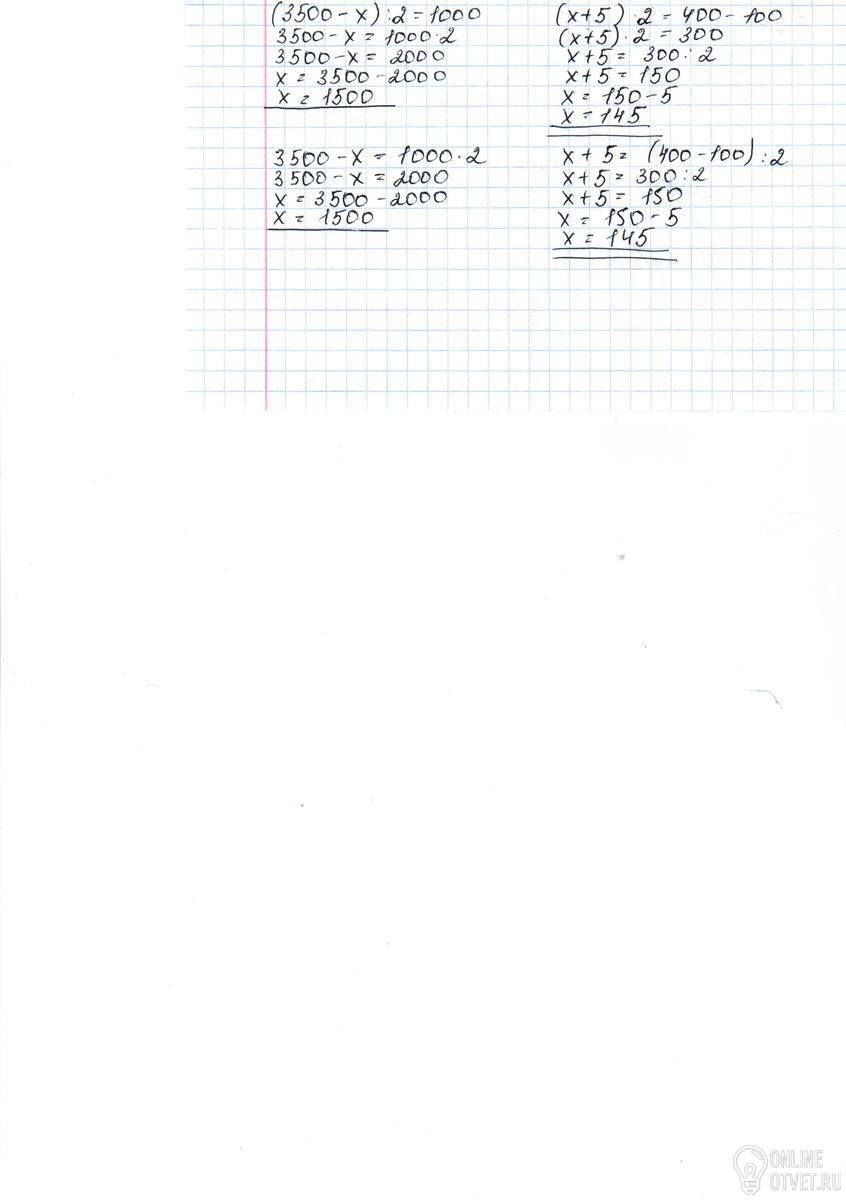 (3500 - x) : 2 = 1000
3500 - x = 1000 · 2
3500 - x = 2000
x = 3500 - 2000
x = 1500
3500 - x = 1000 · 2
3500 - x = 2000
x = 3500 - 2000
x = 1500
(x + 5) · 2 = 400 - 100
(x + 5) · 2 = 300
x + 5 = 300 : 2
x + 5 = 150
x = 150 - 5
x = 145
x + 5 = (400 - 100) : 2
x + 5 = 300 : 2
x + 5 = 150
x = 150 - 5
x = 145
ONLINE
OTVET.RU